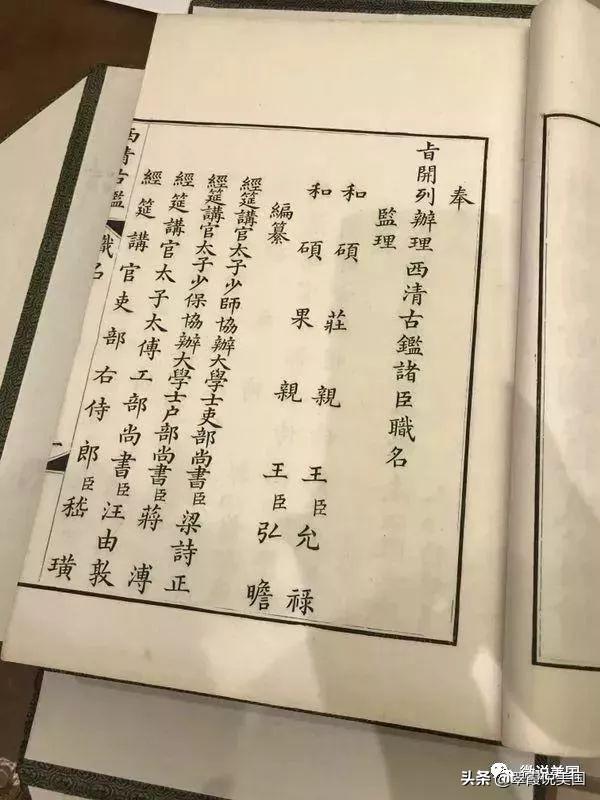 奉
旨開列辦理西清古鑑諸臣職名
監理
和碩莊親王臣允祿
和碩果親王臣弘瞻
編纂
經筵講官太子少師協辦大學士吏部尚書臣梁詩正
經筵講官太子少保協辦大學士戶部尚書臣蔣溥
經筵講官太子太傅工部尚書臣汪由敦
經筵講官吏部右侍郎臣嵇璜
西清古鑑
職名
一
微说美国
头条@翠霞说美国